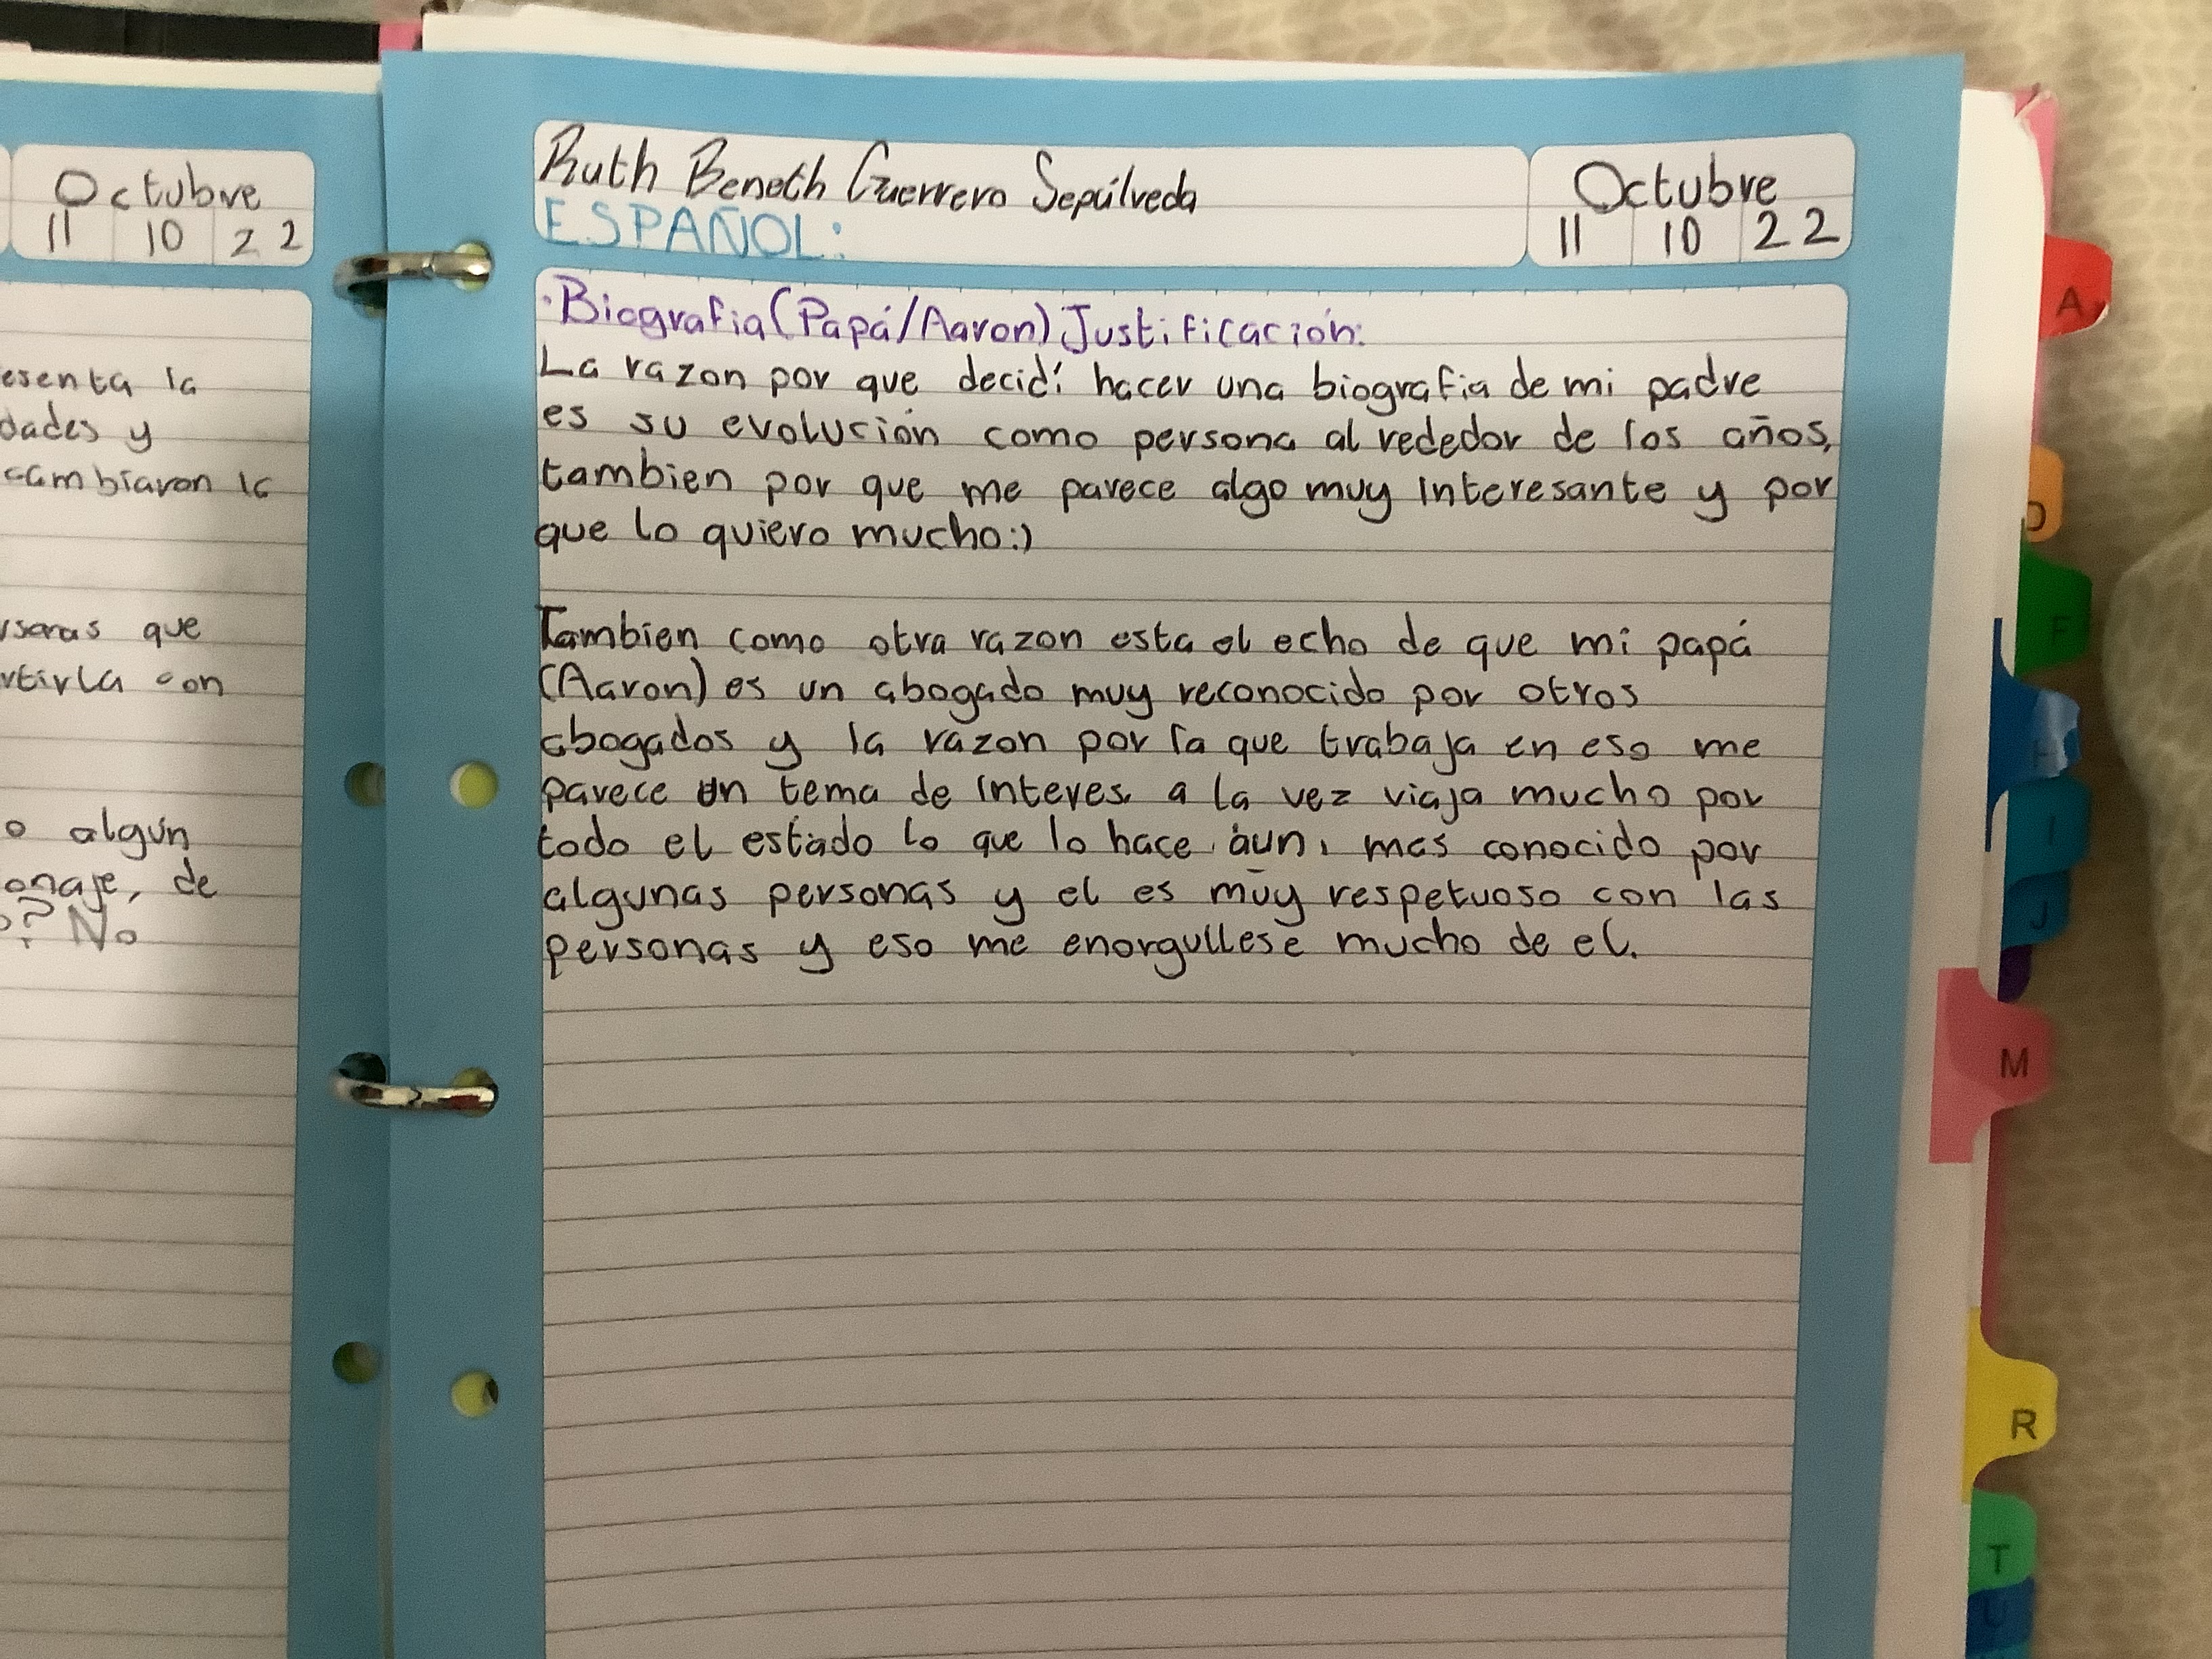 Octubre
11 10 22
esenta la
dades y
cambiaron la
que
rtirla con
o algún
onaje, de
? No
Ruth Beneth Guerrero Sepúlveda
ESPAÑOL:
Octubre
11 10 22
·Biografia (Papá/Aaron) Justificación:
La razon por que decidí hacer una biografia de mi padre
es su evolución como persona al rededor de los años,
tambien por que me parece algo muy interesante y por
que lo quiero mucho:)
Tambien como otra razon esta el echo de que mi papá
(Aaron) es un abogado muy reconocido por otros
abogados y la razon por la que trabaja en eso me
parece un tema de interes, a la vez viaja mucho por
todo el estado lo que lo hace aun, mas conocido por
algunas personas y el es muy respetuoso con las
personas y eso me enorgullese mucho de el.
A
D
F
H
I
J
M
R
T
U